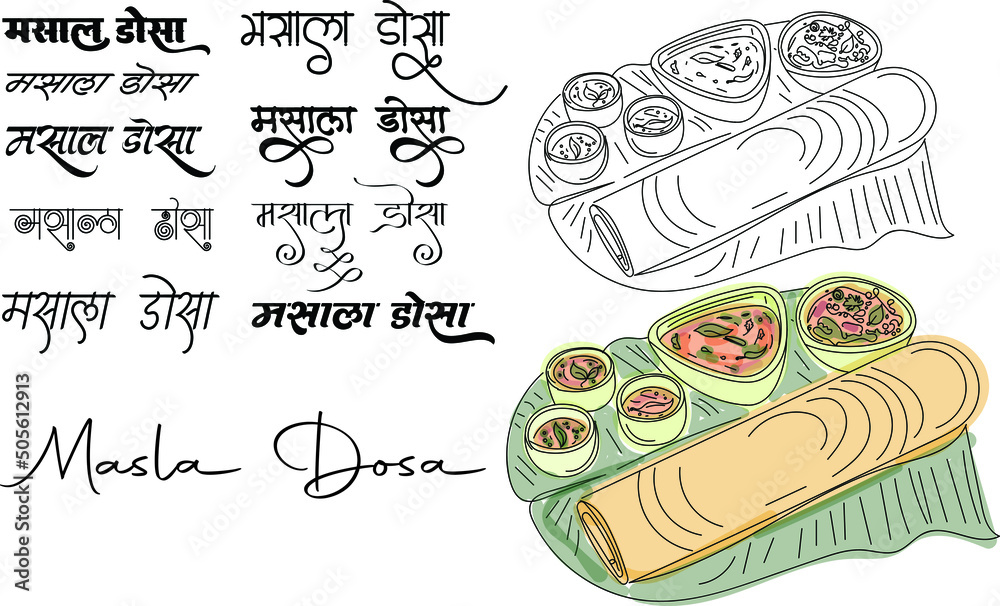 मसाल डोसा
मसाला डोसा
मसाल डोसा
मसाला डोसा
मसाला डोसा
मसाला डोसा
मसाला डोसा
मसाला डोसा
मसाला डोसा
Masla Dosa
Adobe Stock | #505612913